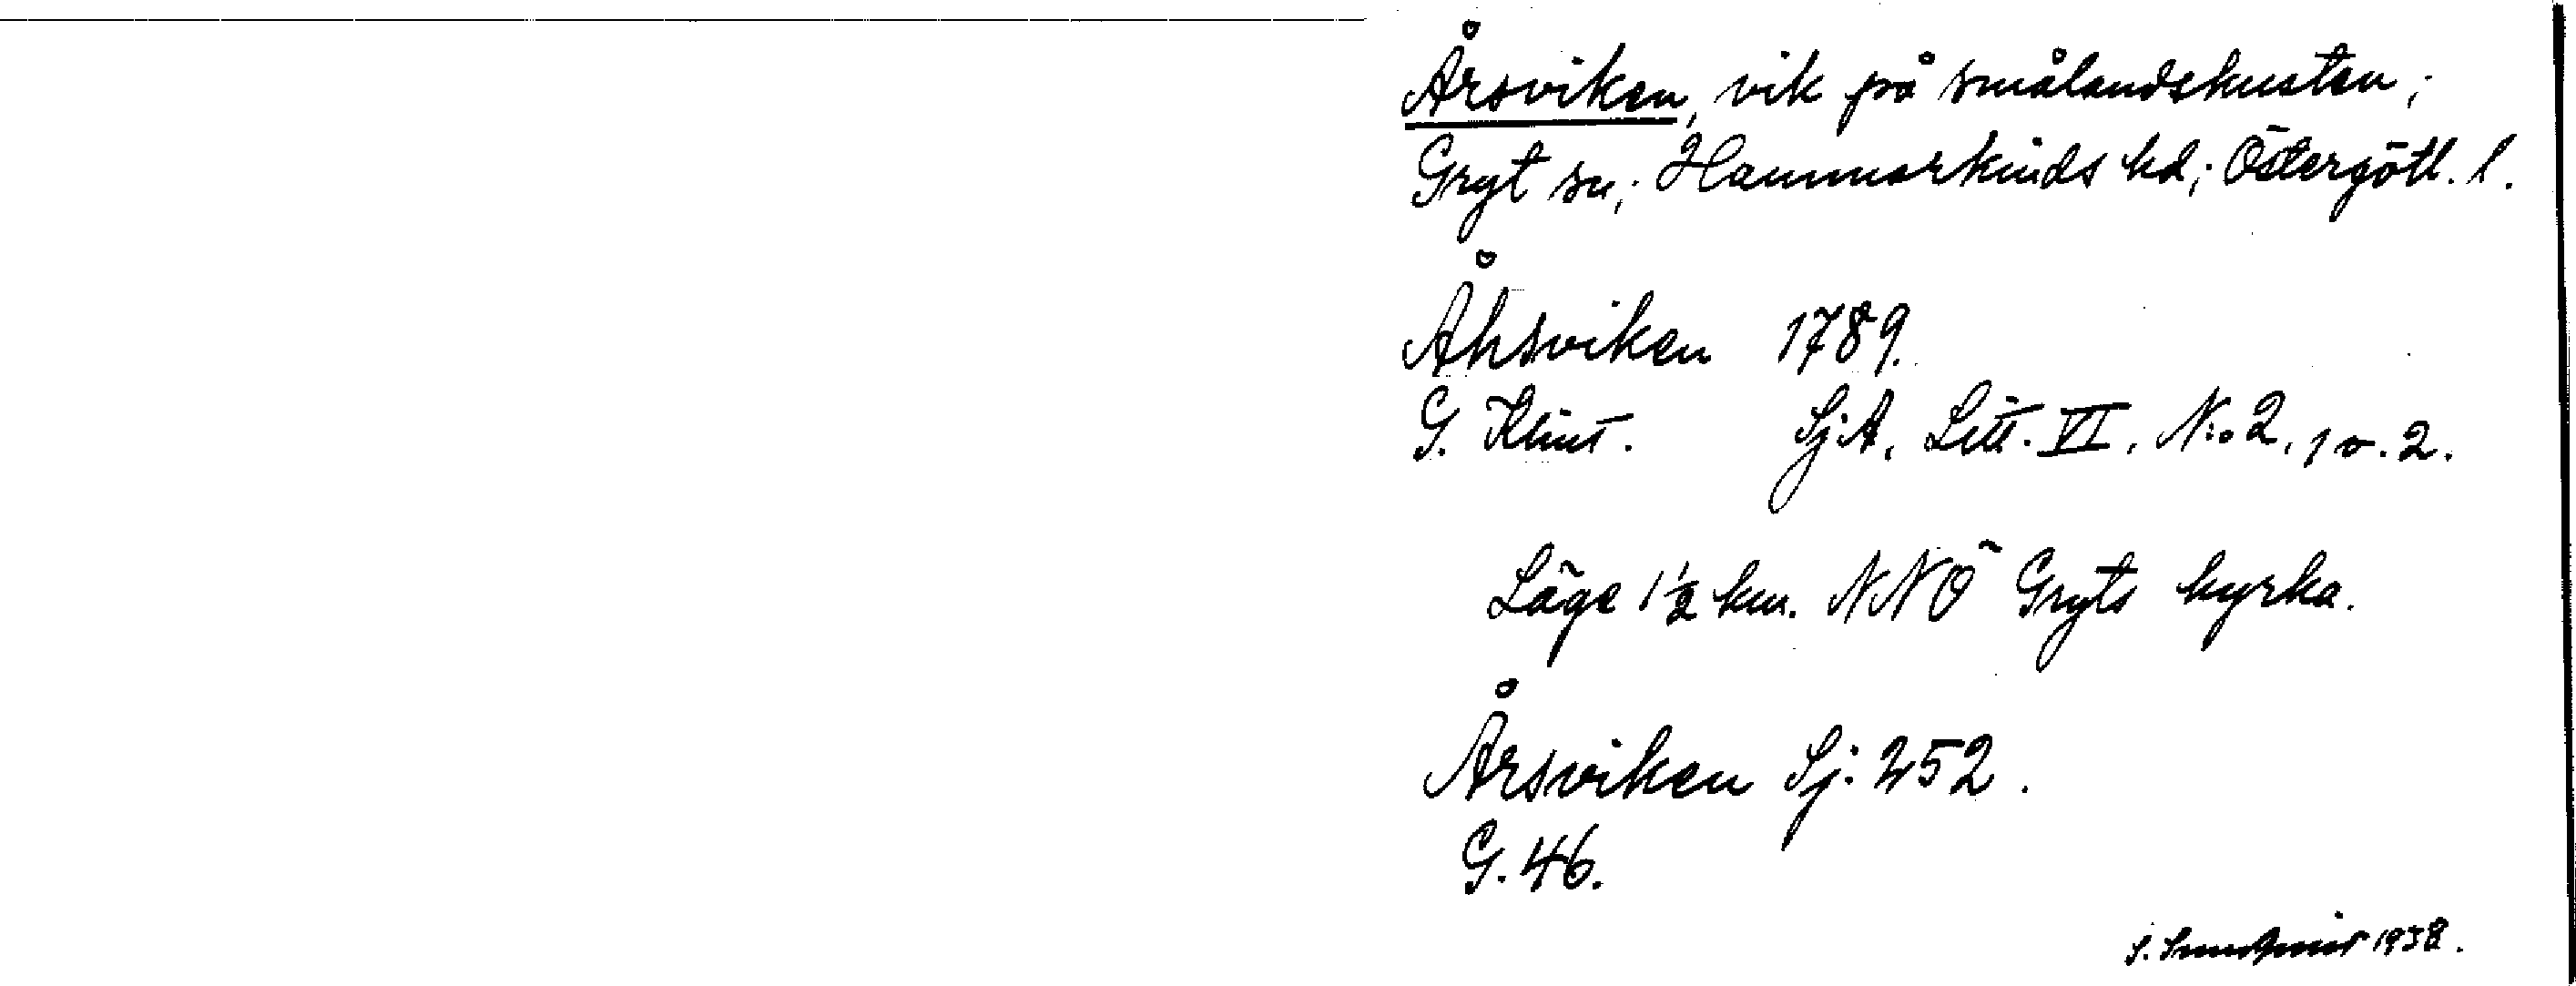 Årsviken, vik på smålandskusten;
Gryt sn; Hammarkinds hd; Östergötl. l.
Åhsviken 1789.
G. Klint. Sj.A. Litt. VI. N:o 2, 1 o. 2.
Läge 1½ km. NNÖ Gryts kyrka.
Årsviken Sj. 252.
G. 46.
S. 1938.